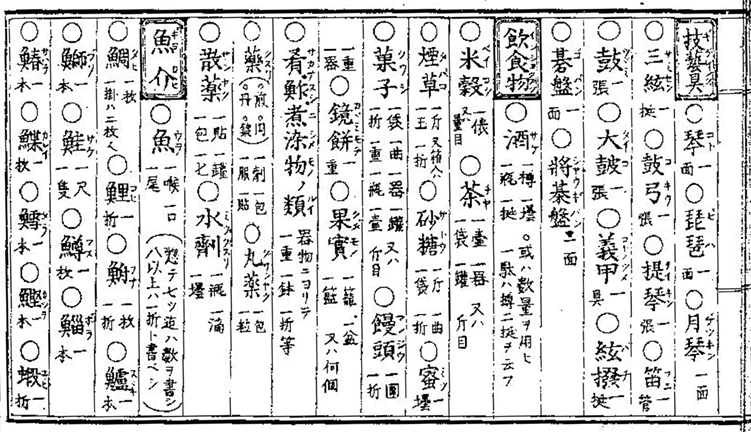 技藝具 ○琴一面 ○琵琶一面 ○月琴一面
○三絃一挺 ○鼓弓一張 ○提琴一張 ○笛一管
○鼓一張 ○大鼓一張 ○義甲一具 ○絃撥一挺
○碁盤一面 ○将棊盤一面
飲食物 ○酒 一樽 一壜 一瓶 一挺 ○或ハ数量ヲ用ヒ 一駄ハ樽二挺ヲ云フ
○米穀 一俵 又量目 ○茶 一壷 一器 又ハ 一袋 一鑵 斤目
○煙草 一斤 又箱入 一玉 一折 ○砂糖 一斤 一曲 一袋 一折 ○蜜一壜
○菓子 一袋 一曲 一器 一鑵 又ハ 一折 一重 一瓶 一壷 斤目 ○饅頭 一圓 一折
一重 一器 ○鏡餅一重 ○果實 一籠 一盆 一籃 又ハ何個
○肴鮓煮染物ノ類 器物ニヨリテ 一重 一鉢 一折等
○薬 一剤 一包 一服 一貼 ○丸薬 一包 一粒
○散薬 一貼 一鑵 一包 一匕 ○水劑 一瓶 一滴 一壜
魚介 ○魚 一喉 一口 一尾 (惣テ七ツ迄ハ数ヲ書シ 八以上ハ一折ト書ベシ)
○鯛 一枚 一掛ハ二枚 ○鯉一折 ○鮒 一枚 一折 ○鱸一本
○鰤一本 ○鮭 一尺 一隻 ○鱒一枚 ○鯔一本
○鰆一本 ○鰈一枚 ○鱈一本 ○鰹一本 ○蝦一折